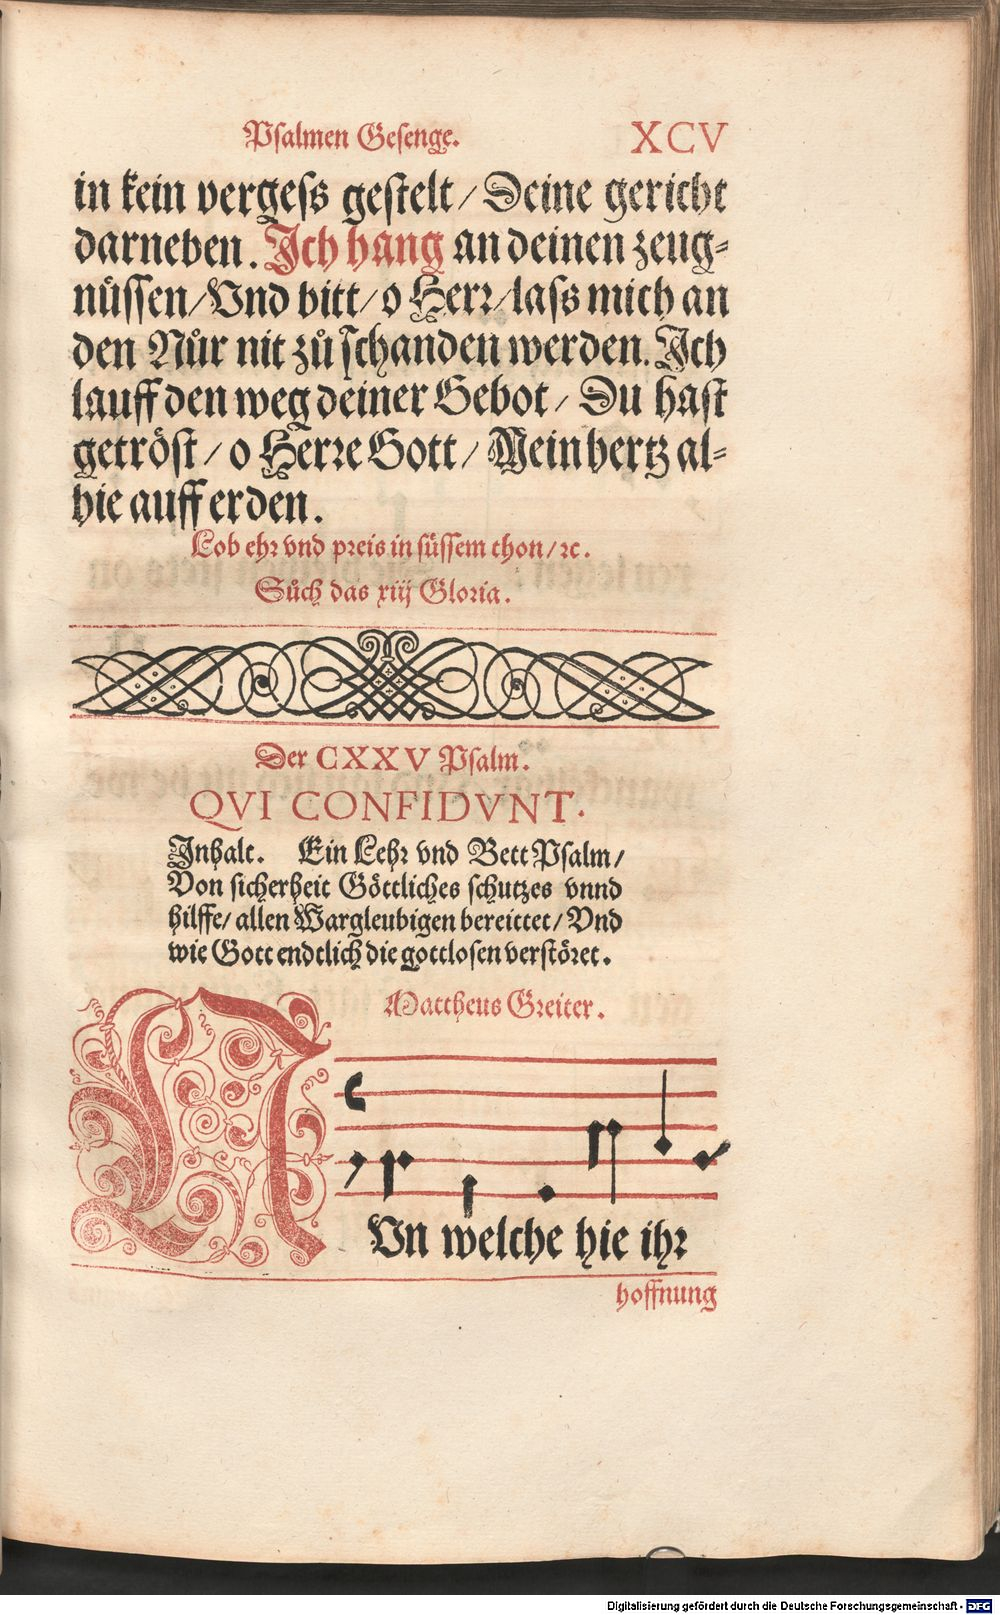 Psalmen Gesenge. XCV
in kein vergess gestelt / Deine gericht
darneben. Ich hang an deinen zeug⸗
nüssen / Vnd bitt / o Herr / lass mich an
den Nůr nit zů schanden werden. Ich
lauff den weg deiner Gebot / Du hast
getröst / o Herre Gott / Mein hertz al⸗
hie auff erden.
Lob ehr vnd preis in süssem thon / ꝛc.
Sůch das xiij Gloria.
Der CXXV Psalm.
QVI CONFIDVNT.
Inhalt. Ein Lehr vnd Bett Psalm /
Von sicherheit Göttliches schutzes vnnd
hilffe / allen Wargleubigen bereittet / Vnd
wie Gott endtlich die gottlosen verstöret.
Mattheus Greiter.
NVn welche hie ihr
hoffnung
Digitalisierung gefördert durch die Deutsche Forschungsgemeinschaft - DFG